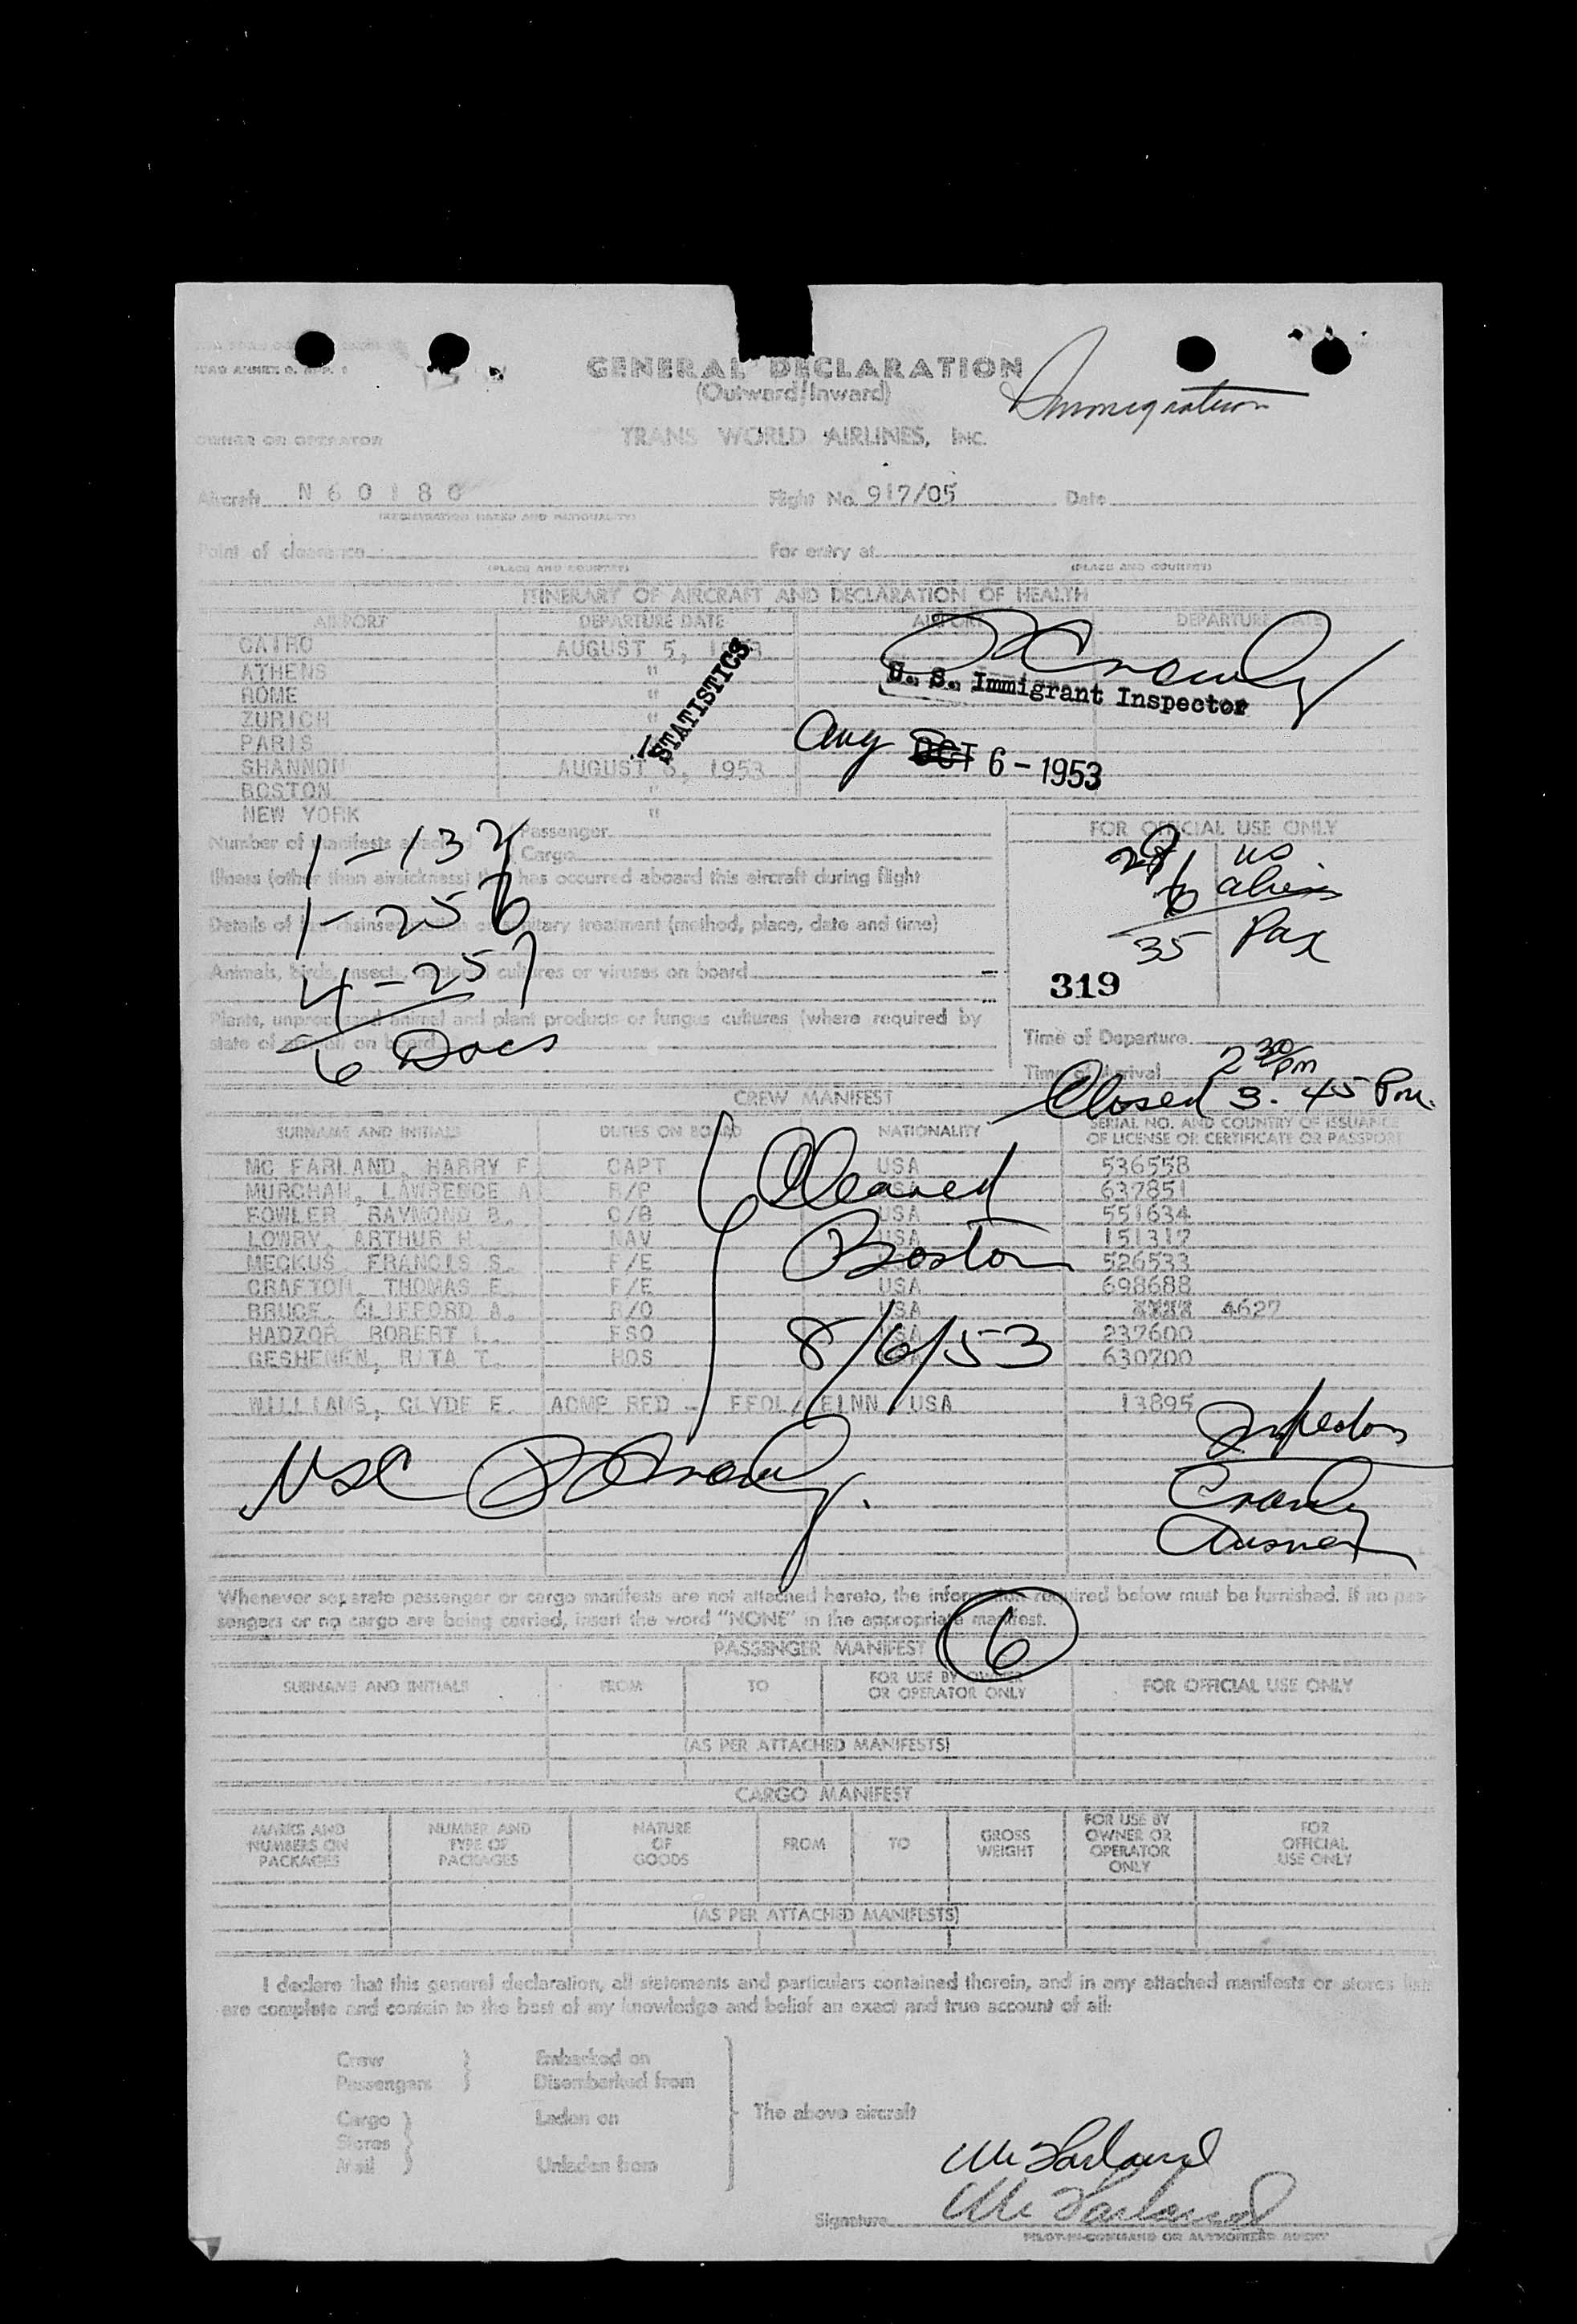 ICAO ANNEX 9, APP. 1
GENERAL DECLARATION
(Outward/Inward)
Immigration
OWNER OR OPERATOR TRANS WORLD AIRLINES, INC.
Aircraft N 6 0 1 8 0 Flight No. 917/05 Date
(REGISTRATION MARKS AND NATIONALITY)
Point of clearance For entry at
(PLACE AND COUNTRY) (PLACE AND COUNTRY)
ITINERARY OF AIRCRAFT AND DECLARATION OF HEALTH
AIRPORT DEPARTURE DATE AIRPORT DEPARTURE DATE
CAIRO AUGUST 5, 1953
ATHENS "
ROME "
ZURICH "
PARIS "
SHANNON AUGUST 6, 1953
BOSTON "
NEW YORK "
STATISTICS
U. S. Immigrant Inspector
Aug OCT 6 - 1953
Number of manifests attached Passenger
Cargo
1 - 132
Illness (other than airsickness) that has occurred aboard this aircraft during flight
1 - 256
Details of last disinsectization or sanitary treatment (method, place, date and time)
Animals, birds, insects, bacterial cultures or viruses on board
4 - 257
Plants, unprocessed animal and plant products or fungus cultures (where required by
state of arrival) on board
6 Docs
FOR OFFICIAL USE ONLY
US
aliens
35 Pax
319
Time of Departure
Time of Arrival 2 30 pm
Closed 3.45 Pm.
CREW MANIFEST
SURNAME AND INITIALS DUTIES ON BOARD NATIONALITY SERIAL NO. AND COUNTRY OF ISSUANCE
OF LICENSE OR CERTIFICATE OR PASSPORT
MC FARLAND, HARRY F. CAPT USA 536558
MURCHAN, LAWRENCE A R/P USA 637851
FOWLER, RAYMOND B. O/B USA 551634
LOWRY, ARTHUR H. NAV USA 151317
MECKUS, FRANCIS S. F/E USA 526533
CRAFTON, THOMAS E. F/E USA 698688
BRUCE, CLIFFORD A. R/O USA 4627
HADZOR, ROBERT L. FSO USA 237600
GESHENEN, RITA T. HOS USA 630700
WILLIAMS, CLYDE E. ACMR RED - EFOL/EINN USA 13895
Cleared
Boston
8/6/53
Inspectors
Crowley
Whenever separate passenger or cargo manifests are not attached hereto, the information required below must be furnished. If no pas-
sengers or no cargo are being carried, insert the word "NONE" in the appropriate manifest.
6
PASSENGER MANIFEST
SURNAME AND INITIALS FROM TO FOR USE BY OWNER
OR OPERATOR ONLY FOR OFFICIAL USE ONLY
(AS PER ATTACHED MANIFESTS)
CARGO MANIFEST
MARKS AND
NUMBERS ON
PACKAGES NUMBER AND
TYPE OF
PACKAGES NATURE
OF
GOODS FROM TO GROSS
WEIGHT FOR USE BY
OWNER OR
OPERATOR
ONLY FOR
OFFICIAL
USE ONLY
(AS PER ATTACHED MANIFESTS)
I declare that this general declaration, all statements and particulars contained therein, and in any attached manifests or stores list
are complete and contain to the best of my knowledge and belief an exact and true account of all:
Crew Embarked on
Passengers Disembarked from
Cargo Laden on The above aircraft
Stores
Mail Unladen from
McFarland
Signature McFarland
PILOT-IN-COMMAND OR AUTHORIZED AGENT